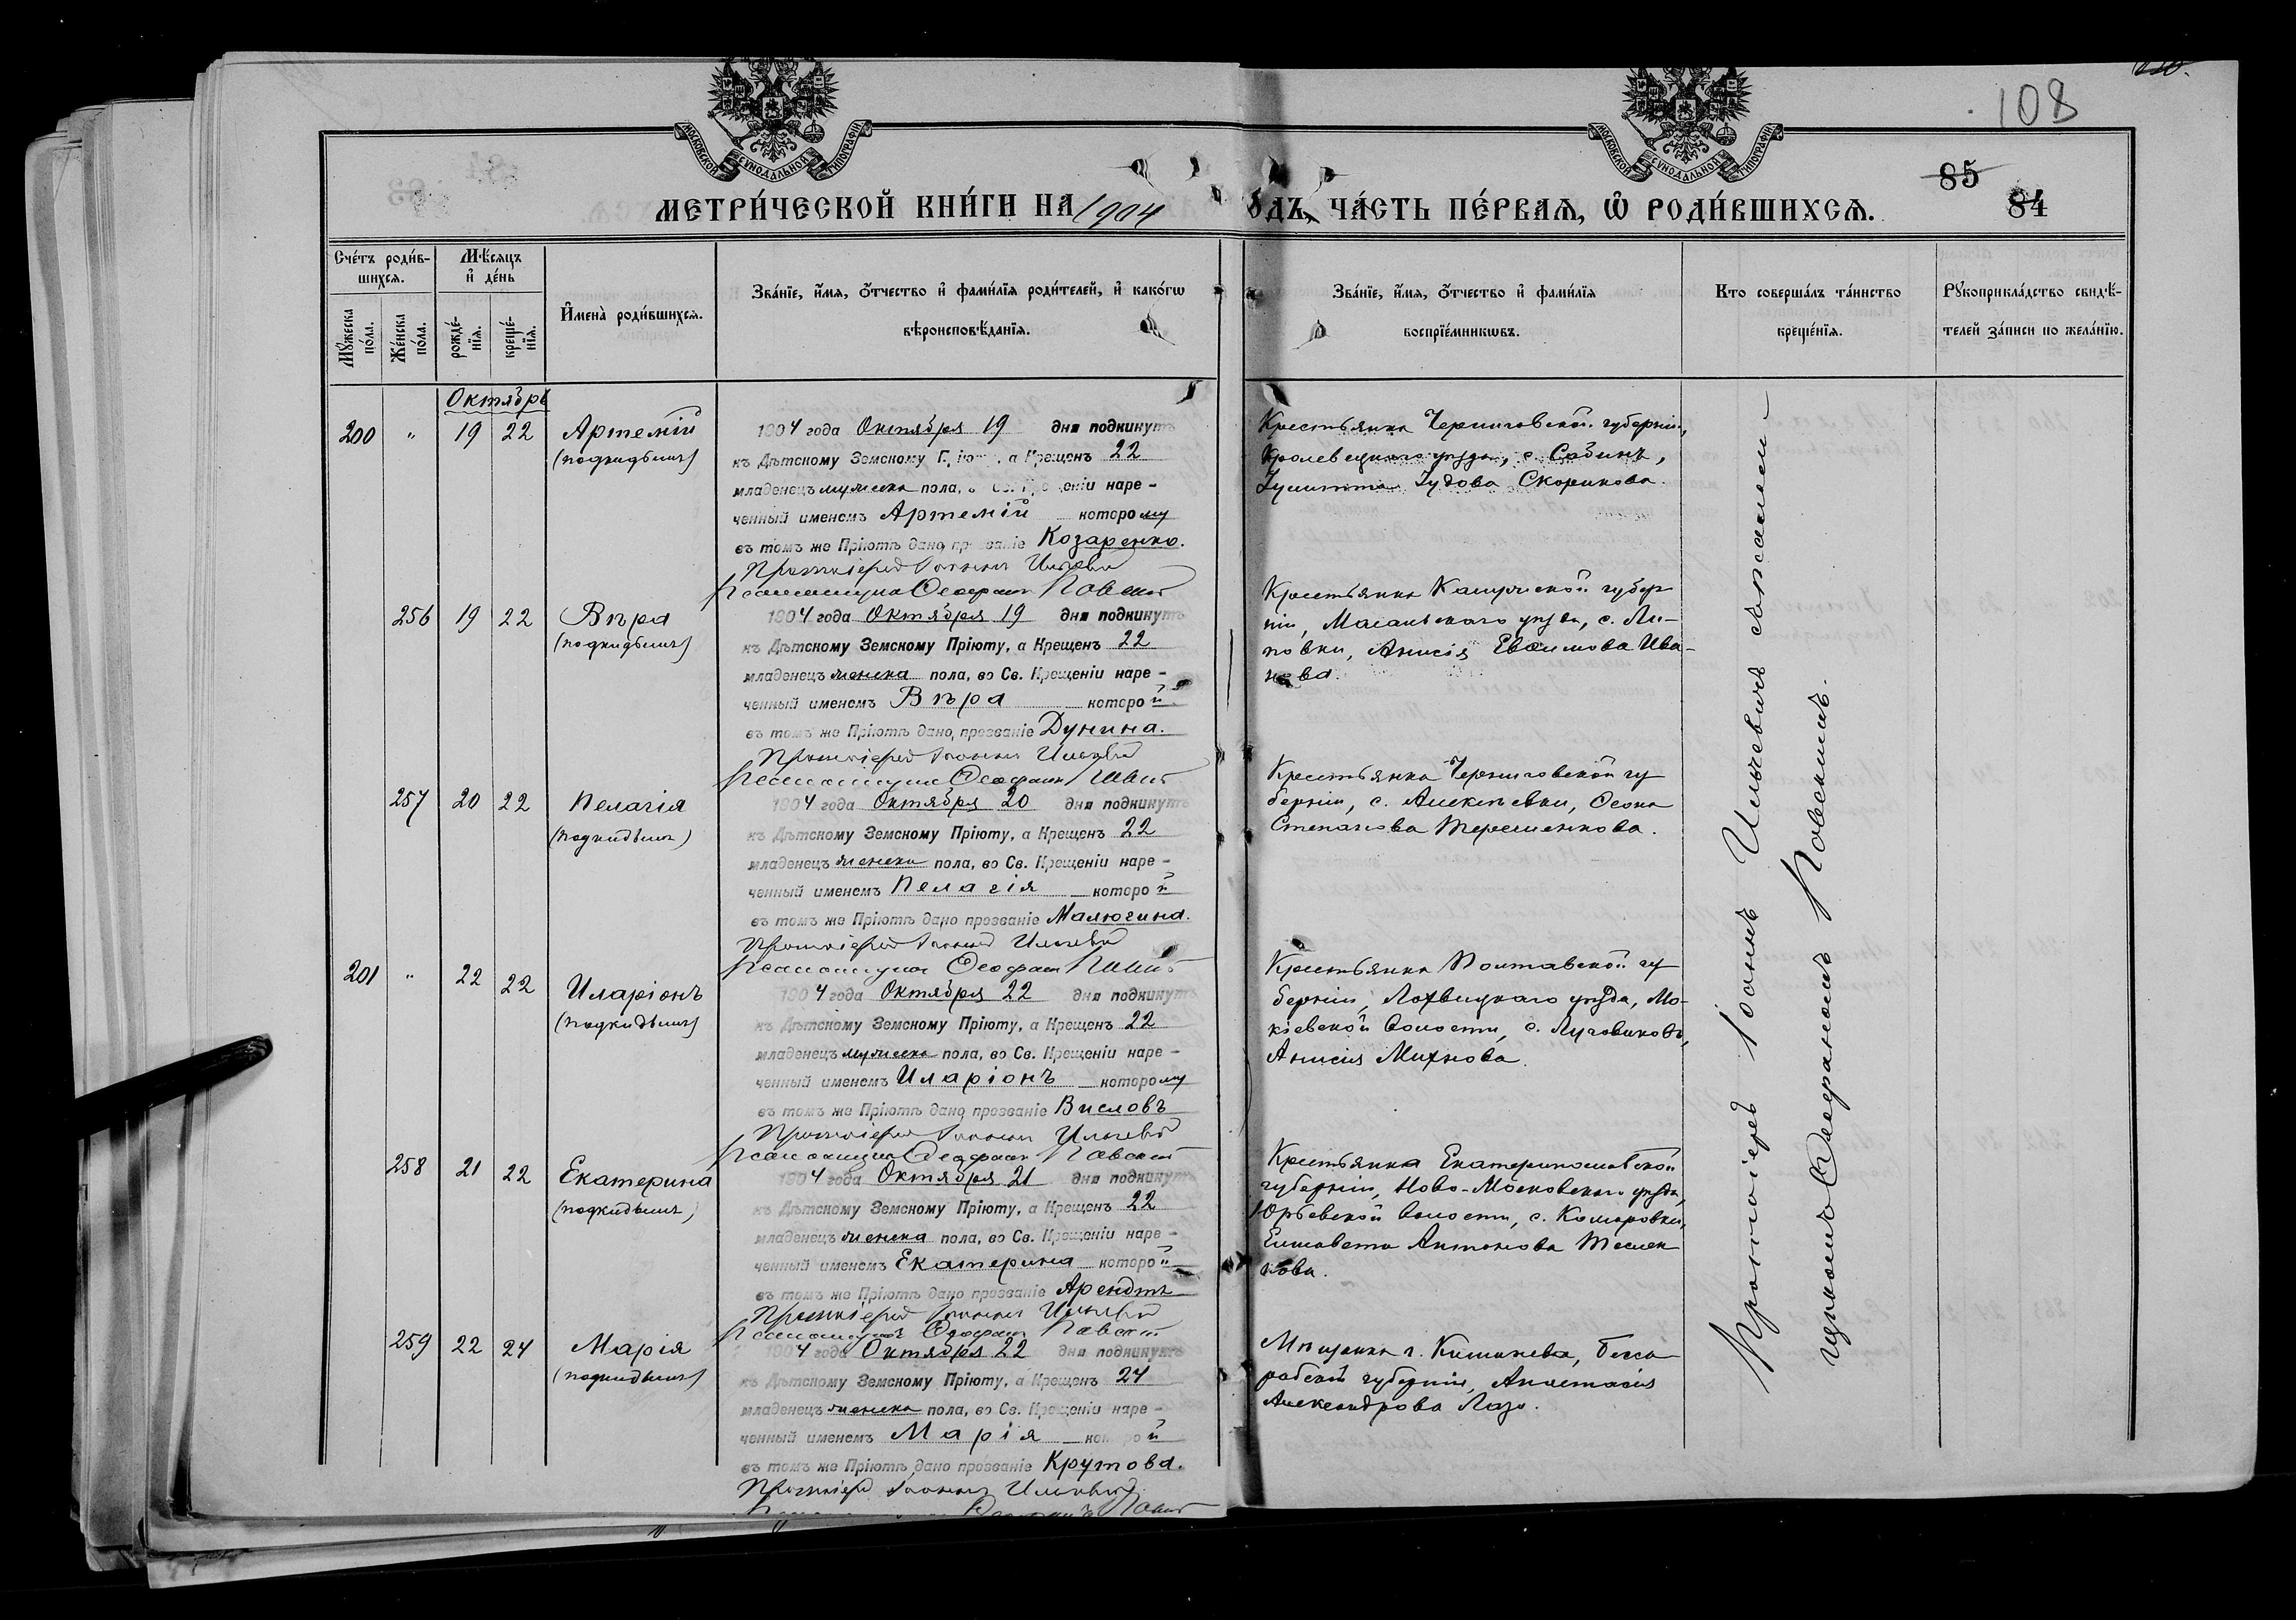 108
85
84
МОСКОВСКОЙ СѴНОДАЛЬНОЙ ТИПОГРАФІИ
МОСКОВСКОЙ СѴНОДАЛЬНОЙ ТИПОГРАФІИ
МЕТРИ́ЧЕСКОЙ КНИ́ГИ НА 1904
ОДЪ, ЧА́СТЬ ПЕ́РВАЯ, Ѽ РОДИ́ВШИХСЯ.
Сче́тъ роди́в-
шихся.
Мѣ́сяцъ
и҆ де́нь
Мꙋ́жеска по́ла.
Же́нска по́ла.
рожде́-
нїя.
креще́-
нїя.
И҆мена̀ роди́вшихся.
Зва́нїе, и҆́мя, ѻ҆́тчество и҆ фами́лїя роди́телей, и҆ како́гѡ
вѣроисповѣ́данїя.
Зва́нїе, и҆́мя, ѻ҆́тчество и҆ фами́лїя
воспрїе́мникѡвъ.
Кто соверша́лъ та́инство
креще́нїя.
Рꙋкоприкла́дство свидѣ́-
телей за́писи по жела́нїю.
Октябрь
200 " 19 22 Артемій
(подкидышъ)
1904 года Октября 19 дня подкинутъ
къ Дѣтскому Земскому а Крещенъ 22
младенецъ мужеска пола, наре-
ченный именемъ Артемій которому
въ томъ же Пріютѣ дано Козаренко.
Протоіерей Іоаннъ Ильчевичъ
Псаломщикъ Ѳеофанъ Повскій
Крестьянка Черниговской губерніи,
Кролевецкаго уѣзда, с.
Скорикова.
256 19 22 Вѣра
(подкидышъ)
1904 года Октября 19 дня подкинутъ
къ Дѣтскому Земскому Пріюту, а Крещенъ 22
младенецъ женска пола, во Св. Крещеніи наре-
ченный именемъ Вѣра которой
въ томъ же Пріютѣ дано прозваніе Дунина.
Протоіерей Іоаннъ Ильчевичъ
Псаломщикъ Ѳеофанъ
Крестьянка губер
ніи, уѣзда, с. Ли-
повки, Анисія Евѳимова Ива-
нова.
257 20 22 Пелагія
(подкидышъ)
1904 года Октября 20 дня подкинутъ
къ Дѣтскому Земскому Пріюту, а Крещенъ 22
младенецъ женска пола, во Св. Крещеніи наре-
ченный именемъ Пелагія которой
въ томъ же Пріютѣ дано прозваніе Малюгина.
Протоіерей Іоаннъ Ильчевичъ
Псаломщикъ Ѳеофанъ
Крестьянка Черниговской гу
берніи, с. Алексѣевки,
Степанова Терешенкова.
201 " 22 22 Иларіонъ
(подкидышъ)
1904 года Октября 22 дня подкинутъ
къ Дѣтскому Земскому Пріюту, а Крещенъ 22
младенецъ мужеска пола, во Св. Крещеніи наре-
ченный именемъ Иларіонъ которому
въ томъ же Пріютѣ дано прозваніе Висловъ
Протоіерей Іоаннъ Ильчевичъ
Псаломщикъ Ѳеофанъ Повскій
Крестьянка Полтавской гу
берніи, Лохвицкаго уѣзда, Мо-
кіевской волости, с. Луговиковъ,
Анисія Михнова.
258 21 22 Екатерина
(подкидышъ)
1904 года Октября 21 дня подкинутъ
къ Дѣтскому Земскому Пріюту, а Крещенъ 22
младенецъ женска пола, во Св. Крещеніи наре-
ченный именемъ Екатерина которой
въ томъ же Пріютѣ дано прозваніе Арендтъ
Протоіерей Іоаннъ Ильчевичъ
Псаломщикъ Ѳеофанъ Повскій
Крестьянка Екатеринославской
губерніи, Ново-Московскаго уѣзда,
Юрьевской волости, с. Комаровки,
Елисавета Антонова
кова.
259 22 24 Марія
(подкидышъ)
1904 года Октября 22 дня подкинутъ
къ Дѣтскому Земскому Пріюту, а Крещенъ 24
младенецъ женска пола, во Св. Крещеніи наре-
ченный именемъ Марія которой
въ томъ же Пріютѣ дано прозваніе Крутова.
Протоіерей Іоаннъ Ильчевичъ
Мѣщанка г. Кишинева, Бесса
рабской губерніи, Анастасія
Александрова Лазо.
Протоіерей Іоаннъ Ильчевичъ съ псаломщикомъ Ѳеофаномъ Повскимъ.